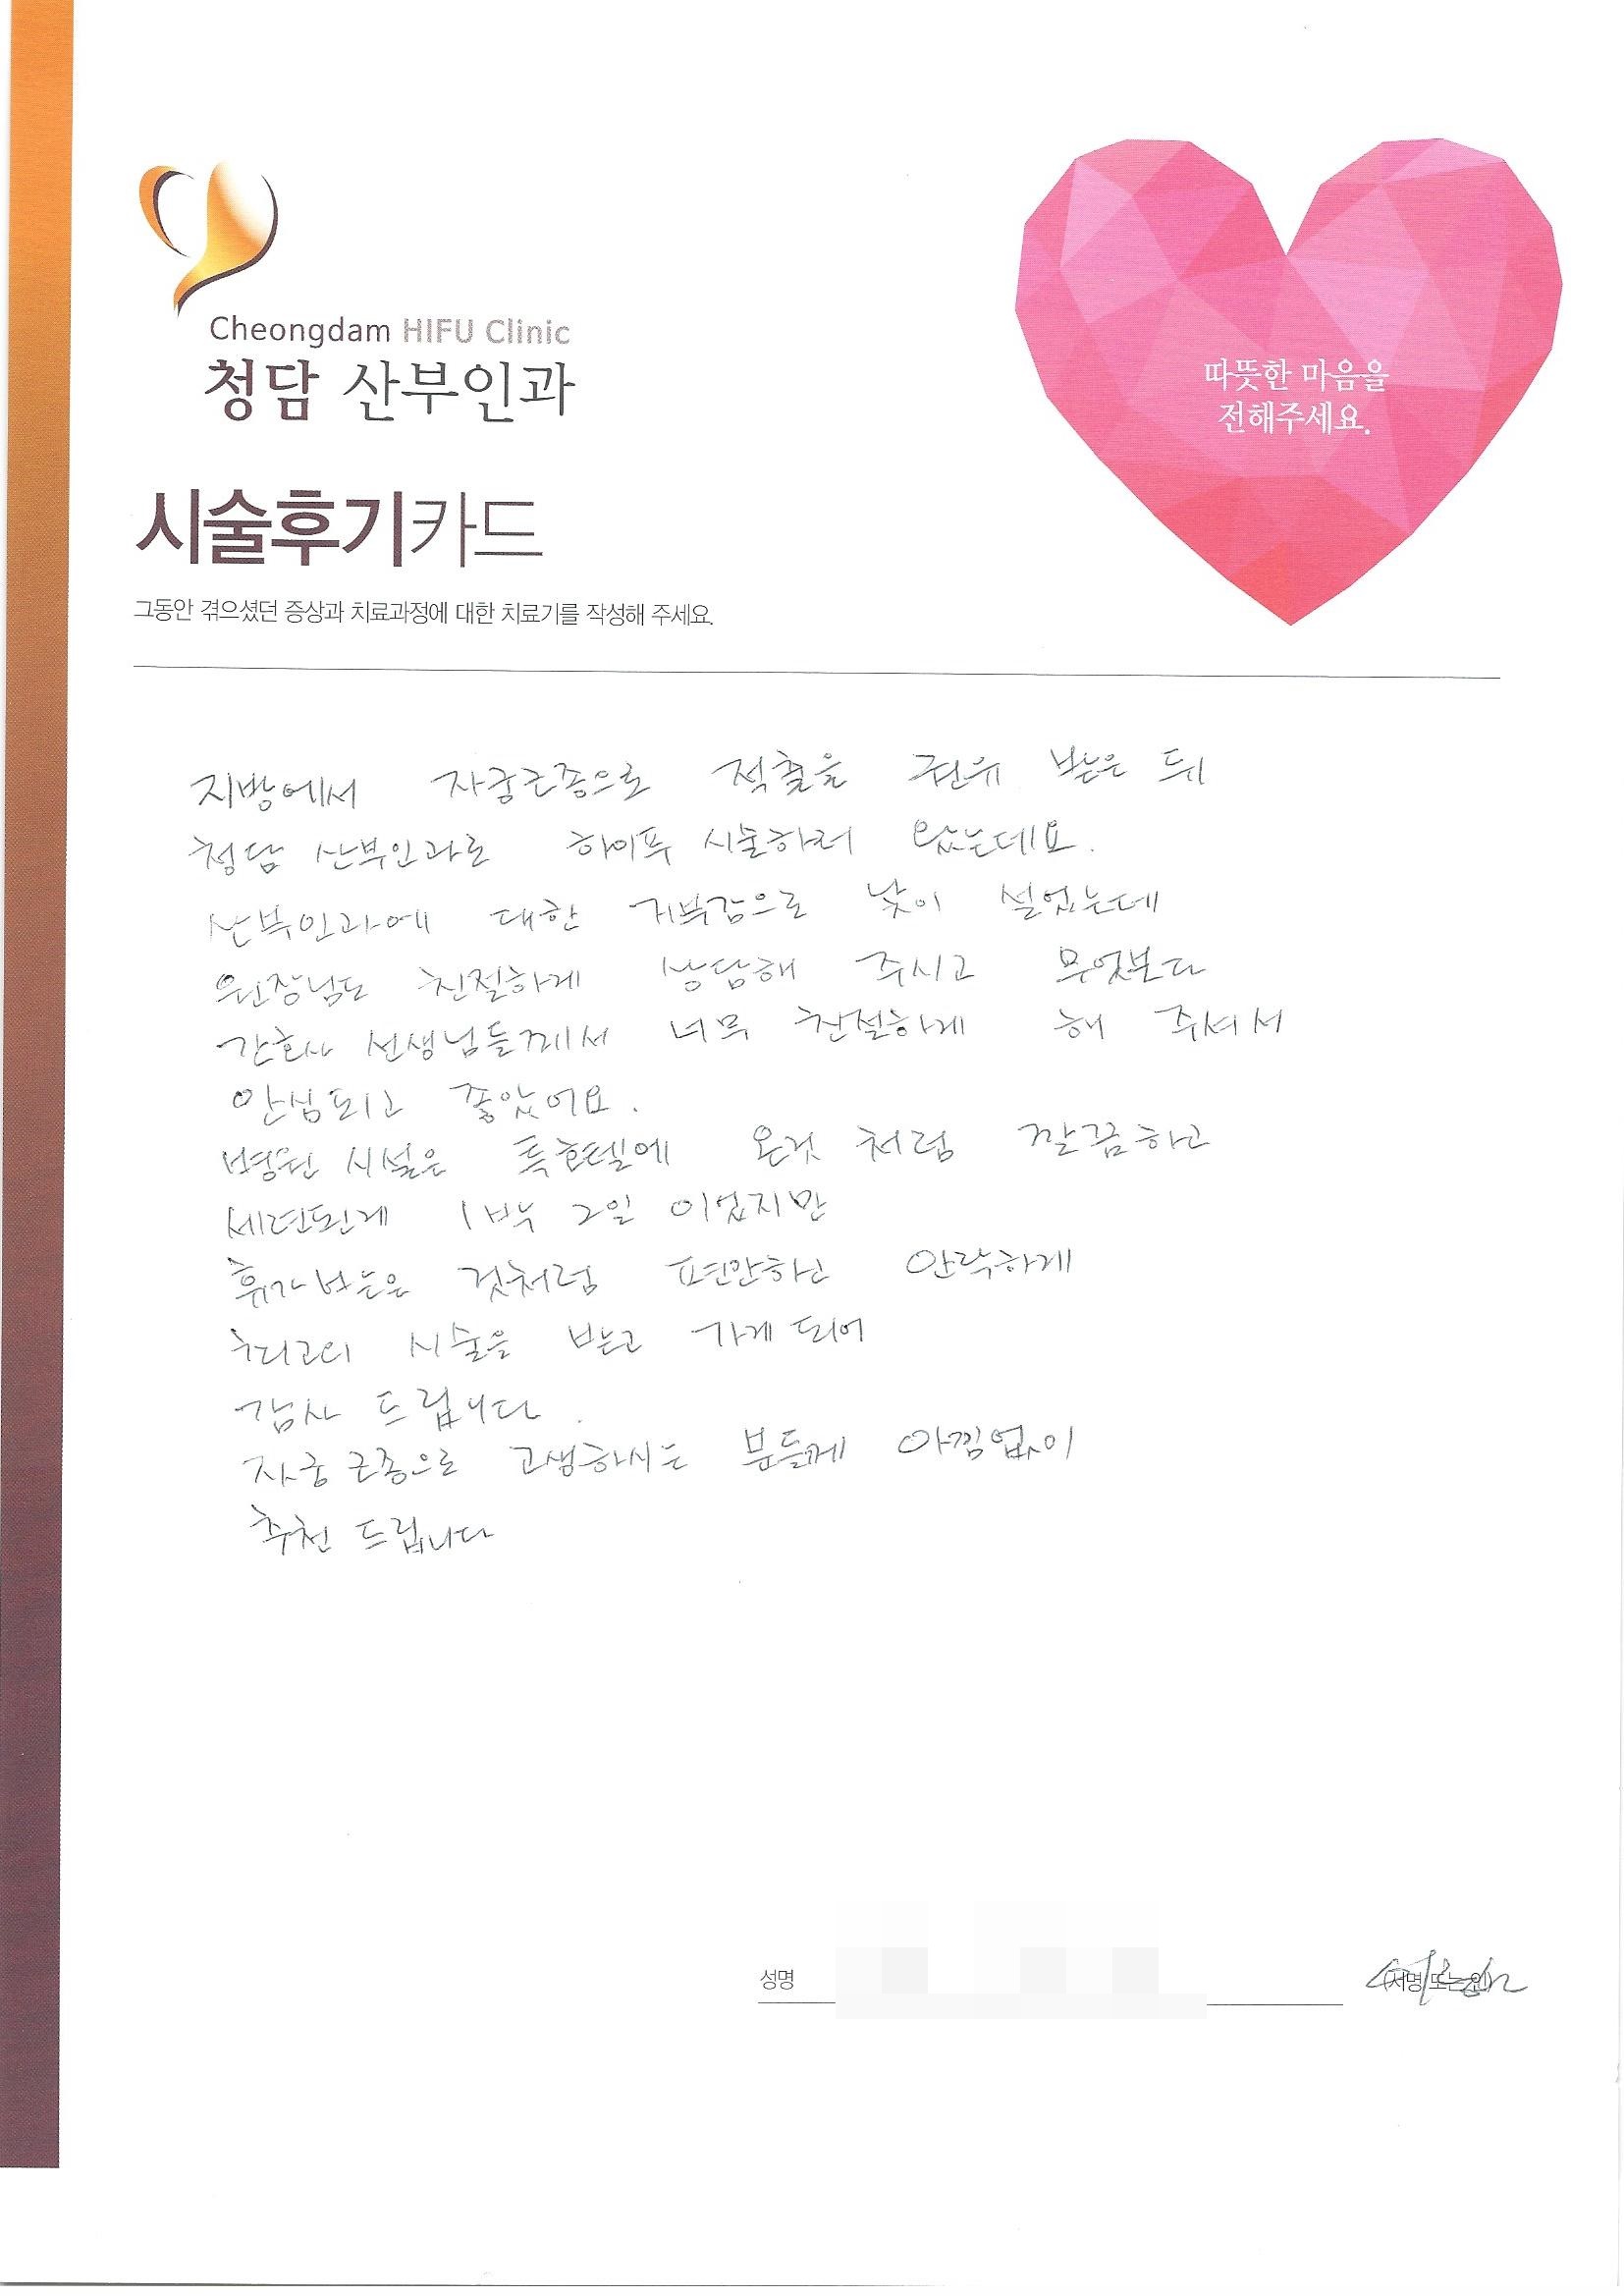 Cheongdam HIFU Clinic
청담 산부인과
따뜻한 마음을
전해주세요.
시술후기카드
그동안 겪으셨던 증상과 치료과정에 대한 치료기를 작성해 주세요.
지방에서 자궁근종으로 적출을 권유 받은 뒤
청담 산부인과로 하이푸 시술하러 왔는데요.
산부인과에 대한 거부감으로 낯이 설었는데
원장님도 친절하게 상담해 주시고 무엇보다
간호사 선생님들께서 너무 친절하게 해 주셔서
안심되고 좋았어요.
병원 시설은 특호텔에 온것 처럼 깔끔하고
세련된게 1박 2일 이었지만
휴가 받은 것처럼 편안하고 안락하게
최고의 시술을 받고 가게 되어
감사 드립니다.
자궁 근종으로 고생하시는 분들께 아낌없이
추천 드립니다
성명
(서명 또는 인)